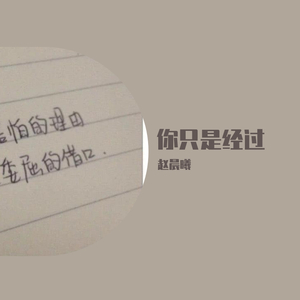 怕的理由
委屈的借口.
你只是经过
赵晨曦